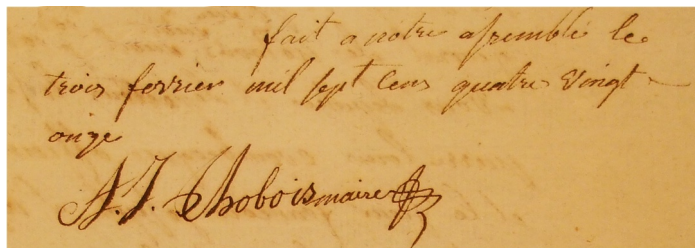 fait a notre assemblé le
trois fevrier mil sept cens quatre vingt
onze
A. J. Thoboismaire